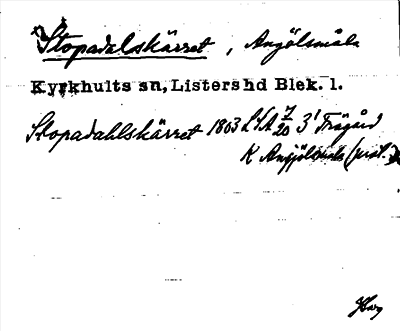 Stopadalskärret, Angölsmåla
Kyrkhults sn, Listers hd Blek. l.
Stopadahlskärret 1803 LSA 7/20 3' Trägård
K Angjölmåla (prot.)